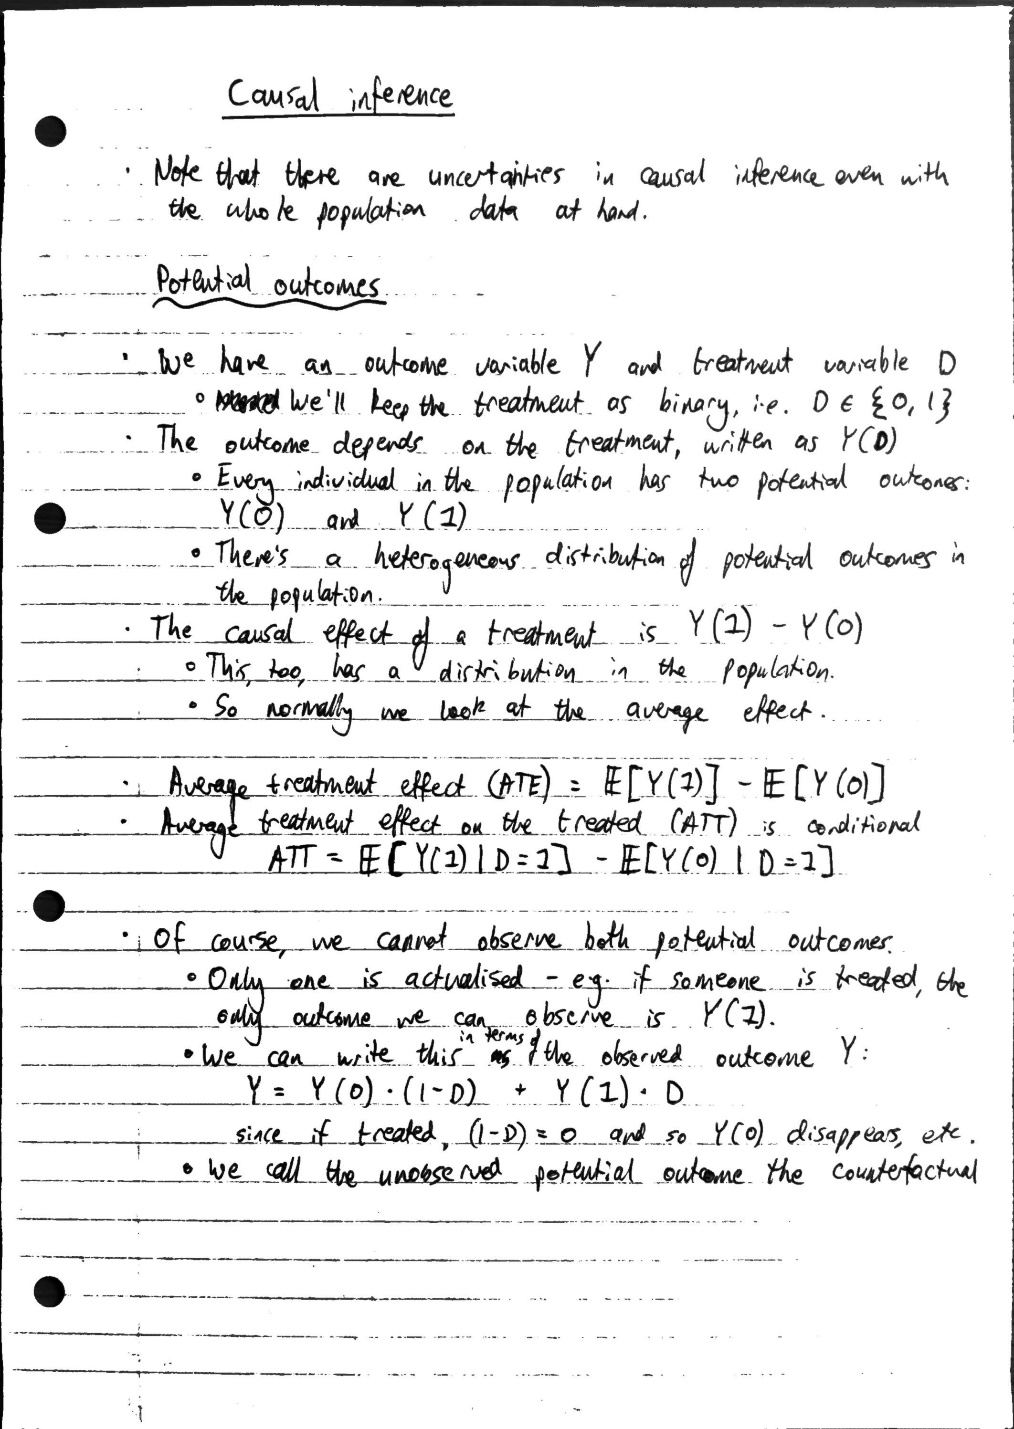 Causal inference
· Note that there are uncertainties in causal inference even with
the whole population data at hand.
Potential outcomes
· We have an outcome variable Y and treatment variable D
∘ We'll keep the treatment as binary, i.e. D ∈ {0,1}
· The outcome depends on the treatment, written as Y(D)
∘ Every individual in the population has two potential outcomes:
Y(0) and Y(1)
∘ There's a heterogeneous distribution of potential outcomes in
the population.
· The causal effect of a treatment is Y(1) - Y(0)
∘ This, too, has a distribution in the population.
∘ So normally we look at the average effect.
· Average treatment effect (ATE) = 𝔼[Y(1)] - 𝔼[Y(0)]
· Average treatment effect on the treated (ATT) is conditional
ATT = 𝔼[Y(1) | D=1] - 𝔼[Y(0) | D=1]
· Of course, we cannot observe both potential outcomes.
∘ Only one is actualised - eg. if someone is treated, the
only outcome we can observe is Y(1).
∘ We can write this in terms of the observed outcome Y:
Y = Y(0)·(1-D) + Y(1)·D
since if treated, (1-D)=0 and so Y(0) disappears, etc.
∘ We call the unobserved potential outcome the counterfactual